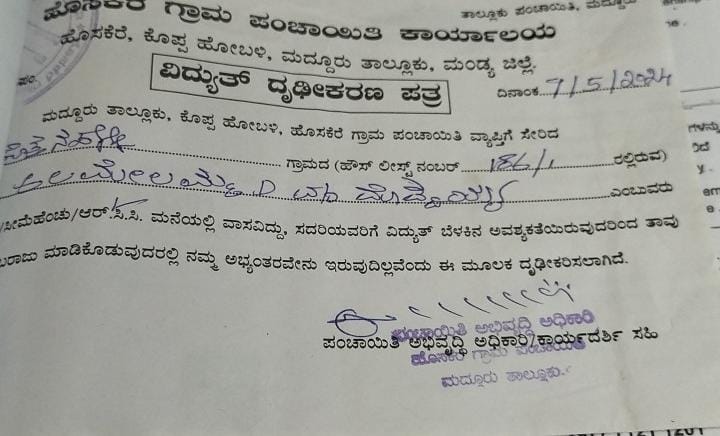 ಹೊಸಕೆರೆ ಗ್ರಾಮ ಪಂಚಾಯಿತಿ ಕಾರ್ಯಾಲಯ
ತಾಲ್ಲೂಕು ಪಂಚಾಯಿತಿ, ಮದ್ದೂರು
ಹೊಸಕೆರೆ, ಕೊಪ್ಪ ಹೋಬಳಿ, ಮದ್ದೂರು ತಾಲ್ಲೂಕು, ಮಂಡ್ಯ ಜಿಲ್ಲೆ.
ಸಂ.
ವಿದ್ಯುತ್ ದೃಢೀಕರಣ ಪತ್ರ
ದಿನಾಂಕ 7/5/2024
ಮದ್ದೂರು ತಾಲ್ಲೂಕು, ಕೊಪ್ಪ ಹೋಬಳಿ, ಹೊಸಕೆರೆ ಗ್ರಾಮ ಪಂಚಾಯಿತಿ ವ್ಯಾಪ್ತಿಗೆ ಸೇರಿದ
ಗ್ರಾಮದ (ಹೌಸ್ ಲೀಸ್ಟ್ ನಂಬರ್ 186/1 ರಲ್ಲಿರುವ)
ಎಂಬುವರು
/ಸೀಮೆಹೆಂಚು/ಆರ್.ಸಿ.ಸಿ. ಮನೆಯಲ್ಲಿ ವಾಸವಿದ್ದು, ಸದರಿಯವರಿಗೆ ವಿದ್ಯುತ್ ಬೆಳಕಿನ ಅವಶ್ಯಕತೆಯಿರುವುದರಿಂದ ತಾವು
ಬರಾಜು ಮಾಡಿಕೊಡುವುದರಲ್ಲಿ ನಮ್ಮ ಅಭ್ಯಂತರವೇನು ಇರುವುದಿಲ್ಲವೆಂದು ಈ ಮೂಲಕ ದೃಢೀಕರಿಸಲಾಗಿದೆ.
ಪಂಚಾಯಿತಿ ಅಭಿವೃದ್ಧಿ ಅಧಿಕಾರಿ
ಪಂಚಾಯಿತಿ ಅಭಿವೃದ್ಧಿ ಅಧಿಕಾರಿ/ಕಾರ್ಯದರ್ಶಿ ಸಹಿ
ಹೊಸಕೆರೆ ಗ್ರಾಮ ಪಂಚಾಯಿತಿ
ಮದ್ದೂರು ತಾಲ್ಲೂಕು.